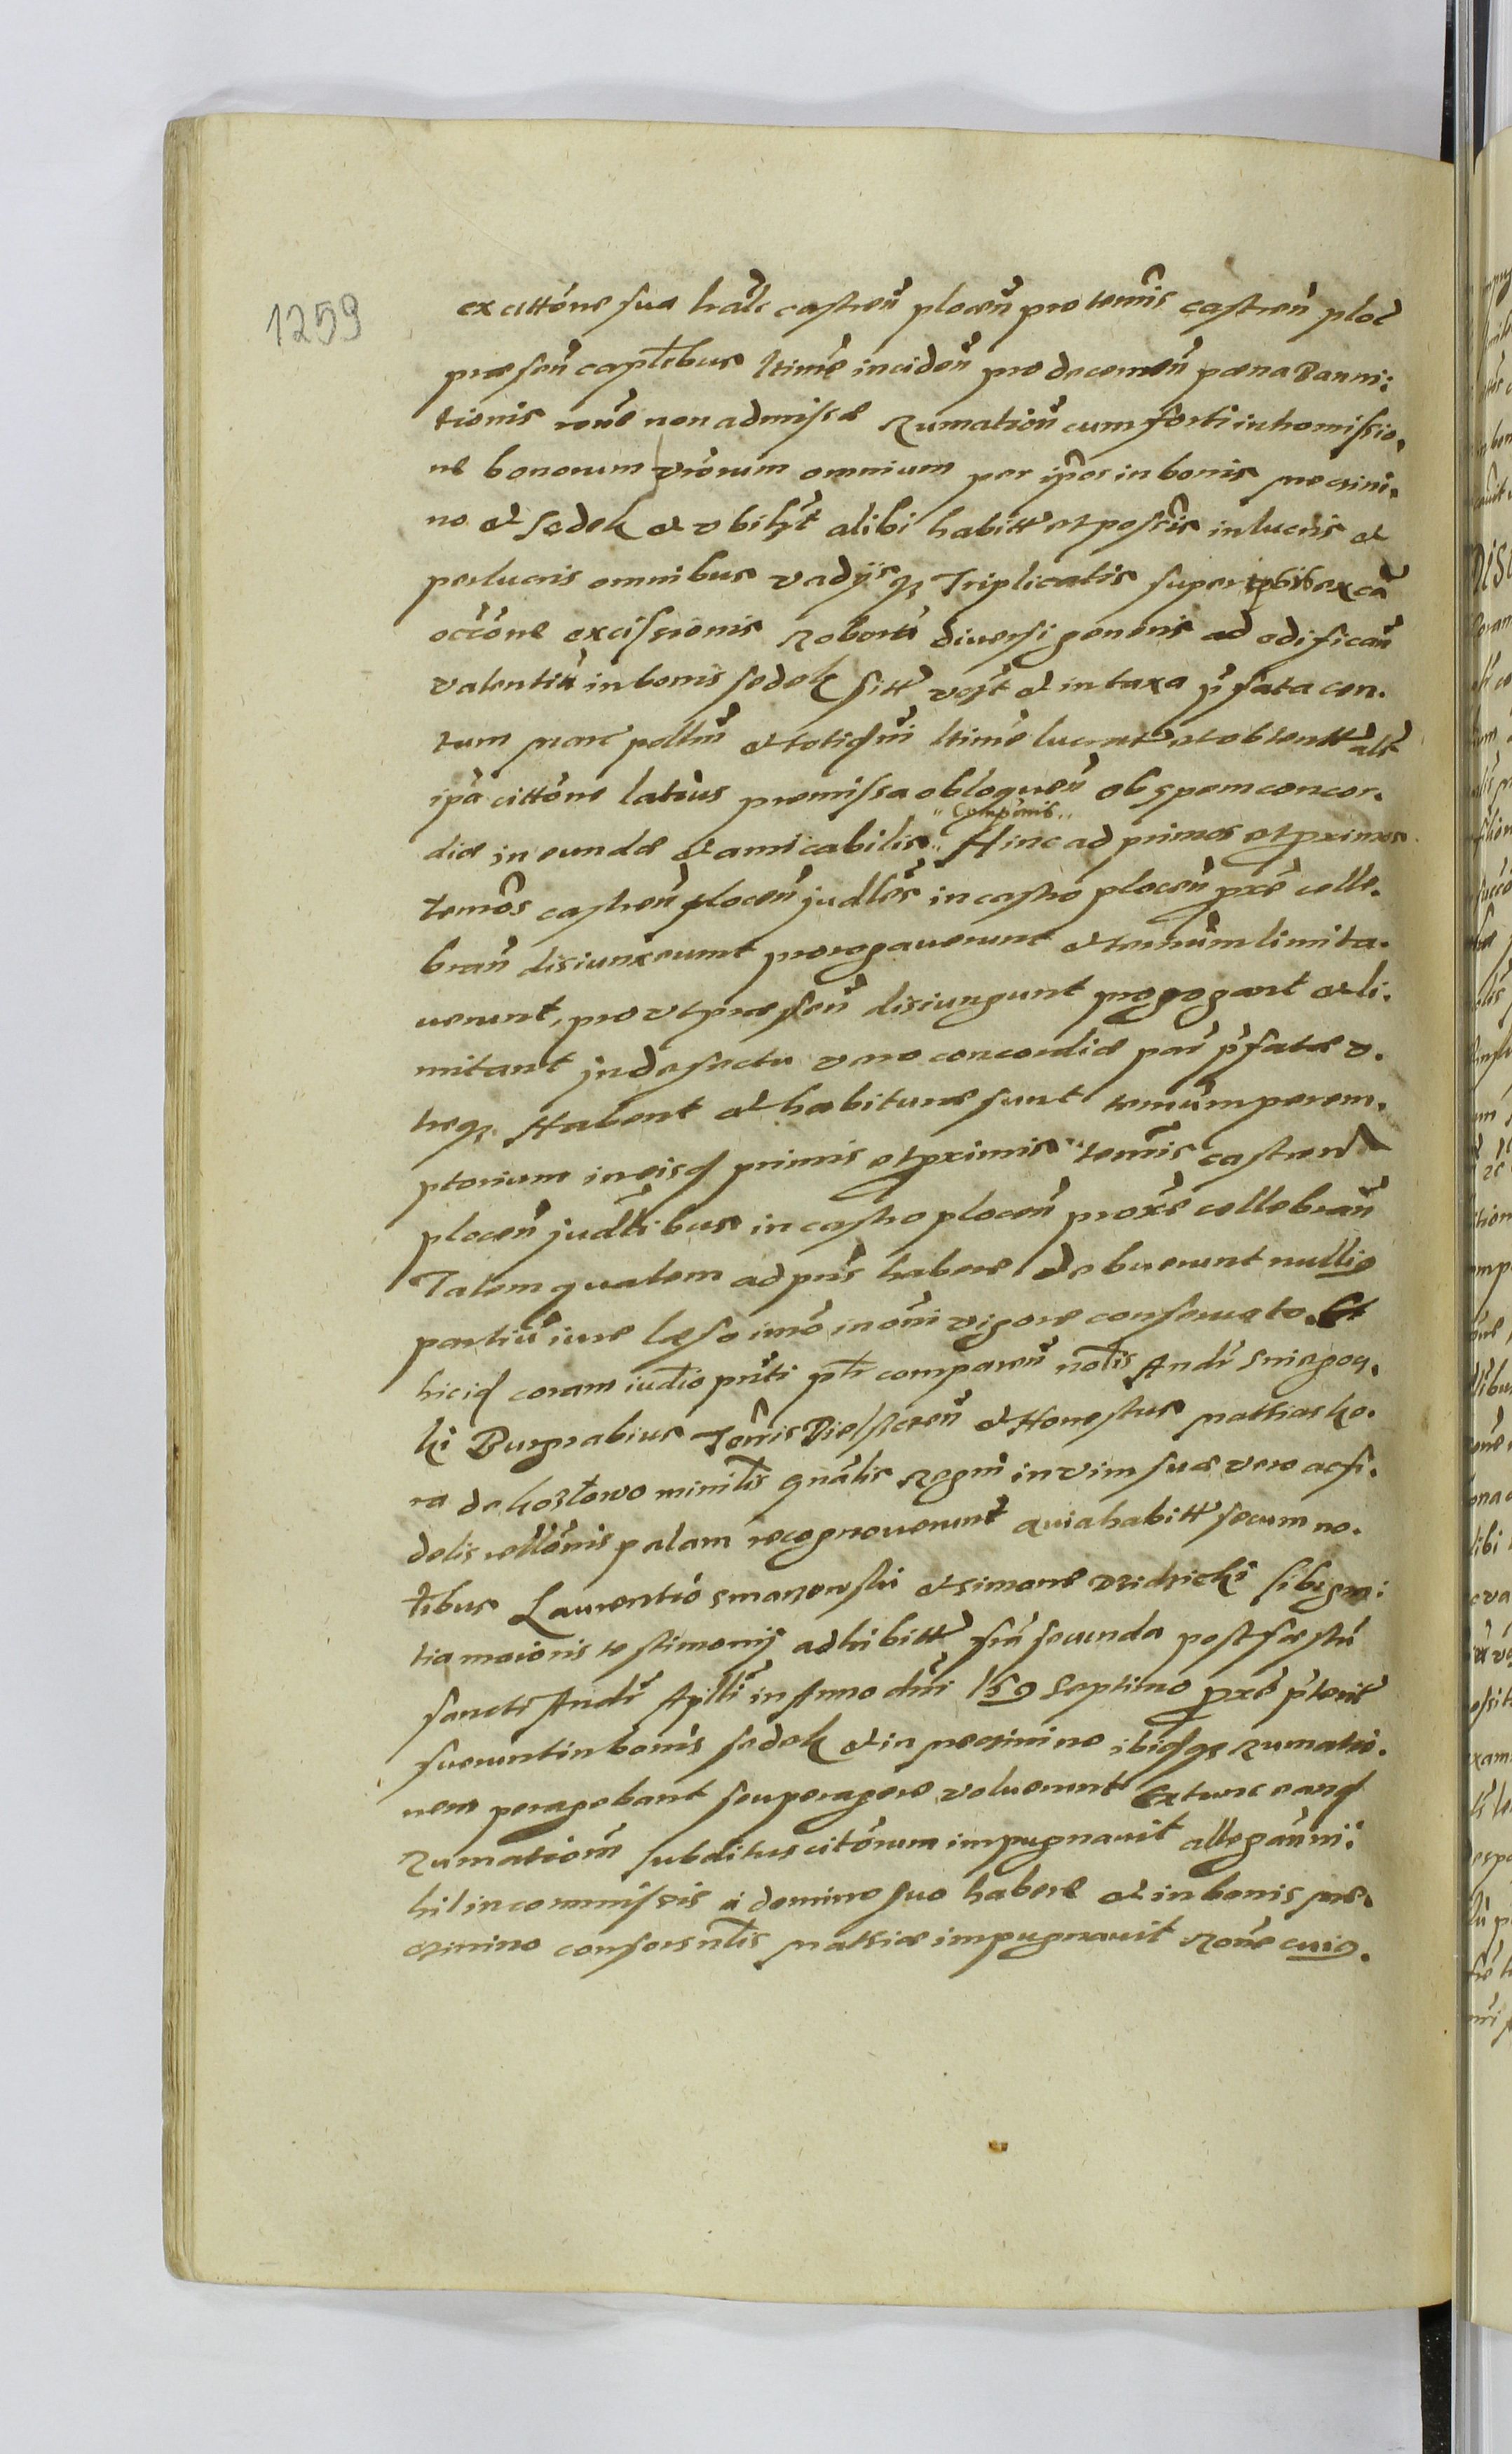 1259
ex cittone sua hãlc castreñ ploceñ pro termis castreñ ploc
præseñ captebus ltime incideñ pro decerneñ pæna Banni:
tionis rone non admissæ Rumationi cum forti intromissio.
ne bonorum viorum omnium per ipos in bonis meczini.
no et Sedek et vbilz alibi habitt et possis in lucris et
perlucris omnibus vadijs qz Triplicatis super ex cã
occone excisionis Roborũ diuersi generis ad edificañ
valentiũ in bonis sedek sitt et in taxa pfata cen.
tum marc pollm et totidm ltime lucrat et obtentt alt
ipa cittone latius premissa obloqueñ ob spem concor.
Componis
diæ in eundæ et amicabilis Hinc ad primos et primos
temos castreñ ploceñ judles in castro ploceñ prx celle.
brañ disiunxerunt prorogauerunt et termum limita.
uerunt, prout præseñ disiungunt progogant et li.
mitant jn defectu vero concordiæ par pfatæ v.
treqz Habent et habituræ sunt termum perem.
ptorium in eisd primis et primis termis castreñ
ploceñ judlibus in castro ploceñ proxe cellebrañ
Talem qualem ad pns habere debuerunt nullig
partiũ iure læso imo in oni vigore conseruato. Et
hicid coram iudio pnti pti compareñ nolis Andr
ki Burgrabius Terris Bielsceñ et Honestus Mathias Ko.
ra de kozłowo minilis gnalis Regni in vim suæ vero ac fi.
delis rellonis palam recognouerunt quia habitt secum no.
bus Laurentio smarzewski et simone sibi gra:
tia maioris testimonij adhibitt fria secunda post fæstũ
sancti Andr Aplli in Anno dni 159 Septimo prxe pterit
fuerunt in bonis sedek et in meczinino ibidqz rumatio.
nem peragebant seu peragere voluerunt Extunc eand
Rumationem subditus citorum impugnauit allegañ ni:
hil in commissis a domino suo habere et in bonis me.
czinino consors nlis Mathiæ impugnauit Rone cuig.